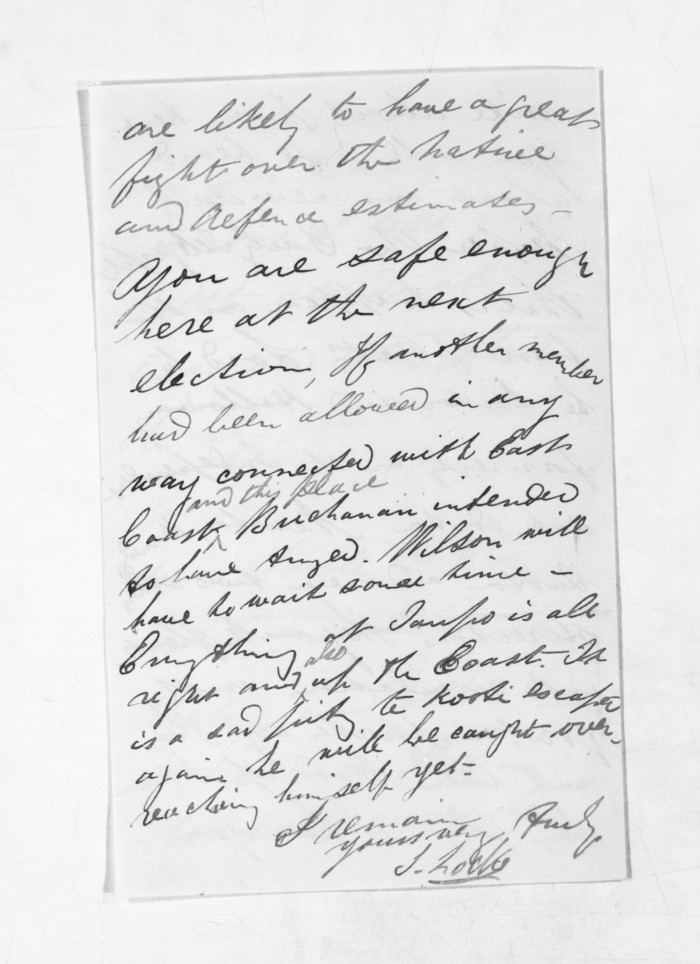 are likely to have a great
fight over the native
and defence estimates –
You are safe enough
here at the next
election, If another member
had been allowed in any
way connected with East
and this place
Coast Buchanan intended
to have Wilson will
have to wait some time –
Everything at Taupo is all
also
right and up the Coast. It
is a sad pity te Kooti escaped
again he will be caught over-
reaching himself yet –
I remain
yours very truly
S. Locke